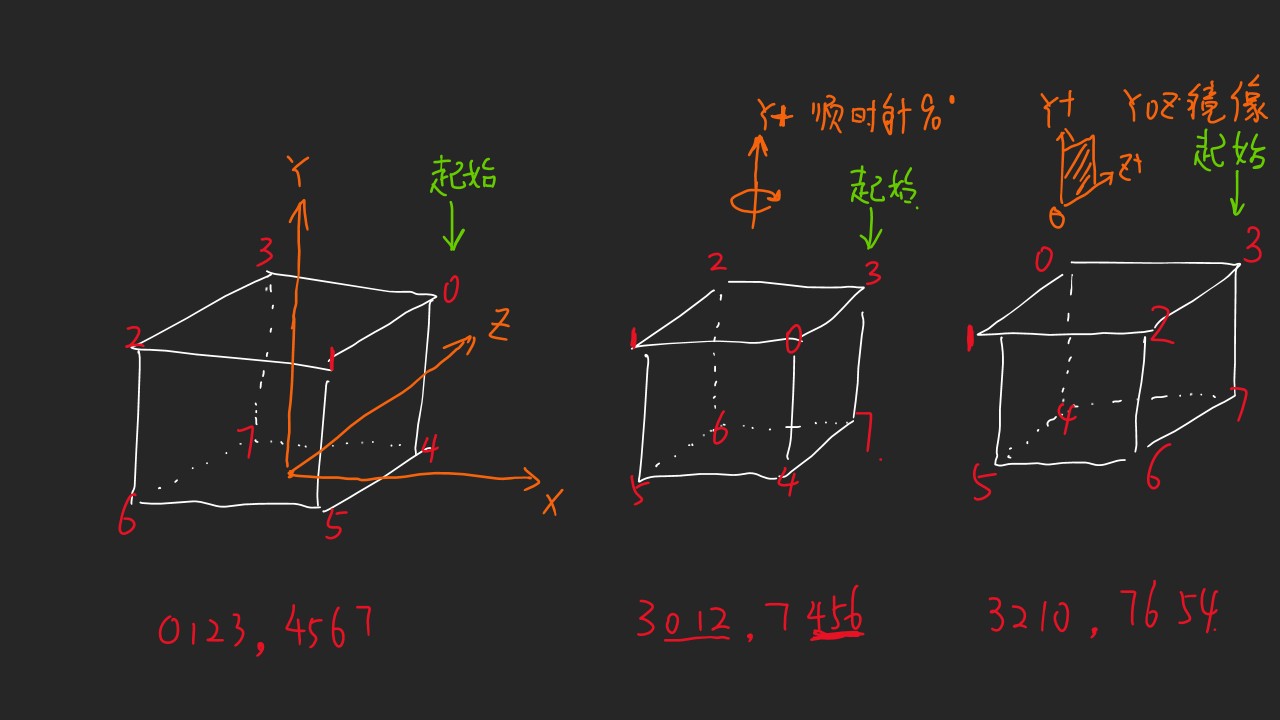 Y
起始
3
0
2
1
Z
7
4
6
5
X
0123,4567
Y+ 顺时针90°
起始
2
3
1
0
6
7
5
4
3012,7456
Y+ YOZ镜像
Z+
O
起始
0
3
1
2
4
7
5
6
3210,7654